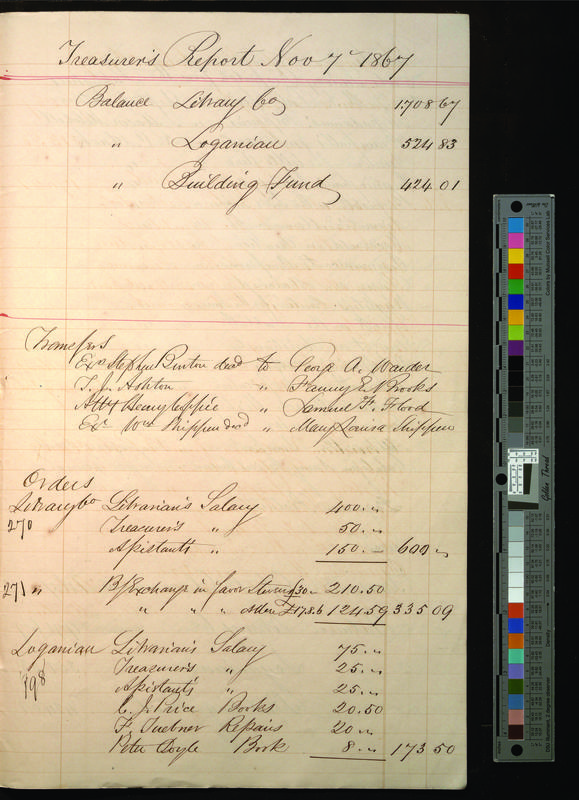 Treasurer's Report Nov 7th 1867
Balance Library Co 1708 67
" Loganian 524 83
" Building Fund 424 01
Transfers
Exr Stephen Burton dead to George A. Warder
T. J. Ashton " Fanny E. Brooks
Henry Cuppie " Samuel F. Flood
Exr Wm Shippen dead " Mary Louisa Shippen
Orders
Library Co Librarian's Salary 400. "
270 Treasurer's " 50. "
Assistants " 150. — 600 "
271 " B/Exchange in favor Stevens £30 " 210.50
" " " £17.8.6 124.59 335 09
Loganian Librarian's Salary 75. "
198 Treasurer's " 25. "
Assistants " 25. "
C. J. Price Books 20.50
F. Tuebner Repairs 20 "
Peter Doyle Book 8. " 173 50